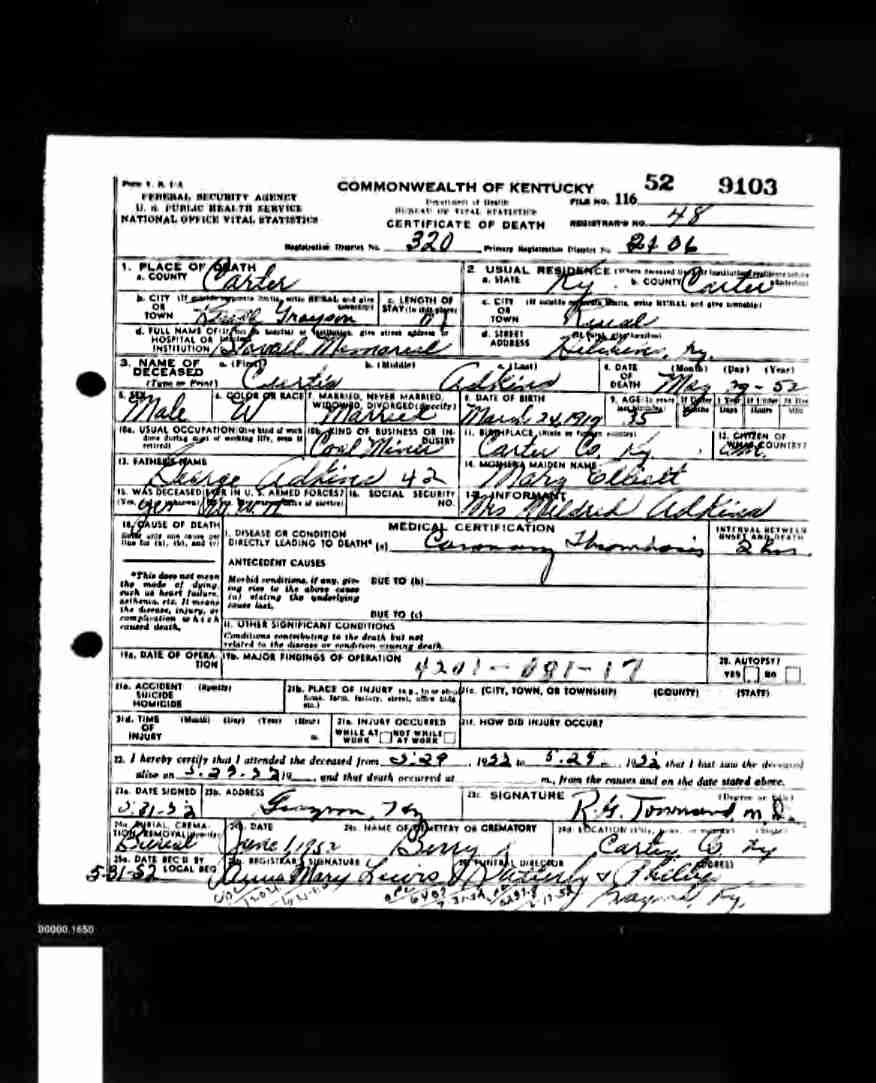 COMMONWEALTH OF KENTUCKY
52 9103
FEDERAL SECURITY AGENCY
U. S. PUBLIC HEALTH SERVICE
NATIONAL OFFICE VITAL STATISTICS
Department of Health
BUREAU OF VITAL STATISTICS
CERTIFICATE OF DEATH
FILE NO. 116
REGISTRAR'S NO. 48
Registration District No. 320 Primary Registration District No.
1. PLACE OF DEATH
a. COUNTY Carter
2. USUAL RESIDENCE
a. STATE Ky. b. COUNTY Carter
b. CITY OR TOWN Rural Grayson
c. LENGTH OF STAY
c. CITY OR TOWN Rural
d. FULL NAME OF HOSPITAL OR INSTITUTION Memorial
d. STREET ADDRESS Ky.
3. NAME OF DECEASED (Type or Print)
a. (First) Curtis b. (Middle) c. (Last) Adkins
4. DATE OF DEATH (Month) (Day) (Year) May 29-52
5. SEX Male
6. COLOR OR RACE W
7. MARRIED, NEVER MARRIED, WIDOWED, DIVORCED (Specify) Married
8. DATE OF BIRTH March 24, 1917
9. AGE 35
10a. USUAL OCCUPATION
10b. KIND OF BUSINESS OR INDUSTRY Coal Miner
11. BIRTHPLACE Carter Co, Ky.
12. CITIZEN OF WHAT COUNTRY?
13. FATHER'S NAME George Adkins 42
14. MOTHER'S MAIDEN NAME Mary
15. WAS DECEASED EVER IN U. S. ARMED FORCES? yes
16. SOCIAL SECURITY NO.
17. INFORMANT Mrs Mildred Adkins
18. CAUSE OF DEATH
Enter only one cause per line for (a), (b), and (c)
MEDICAL CERTIFICATION
INTERVAL BETWEEN ONSET AND DEATH
I. DISEASE OR CONDITION DIRECTLY LEADING TO DEATH* (a) Coronary Thrombosis 2 hrs.
ANTECEDENT CAUSES
*This does not mean the mode of dying, such as heart failure, asthenia, etc. It means the disease, injury, or complication which caused death.
Morbid conditions, if any, giving rise to the above cause (a) stating the underlying cause last.
DUE TO (b)
DUE TO (c)
II. OTHER SIGNIFICANT CONDITIONS
Conditions contributing to the death but not related to the disease or condition causing death.
19a. DATE OF OPERATION
19b. MAJOR FINDINGS OF OPERATION
20. AUTOPSY? YES NO
21a. ACCIDENT SUICIDE HOMICIDE (Specify)
21b. PLACE OF INJURY
21c. (CITY, TOWN, OR TOWNSHIP) (COUNTY) (STATE)
21d. TIME OF INJURY (Month) (Day) (Year) (Hour)
21e. INJURY OCCURRED WHILE AT WORK NOT WHILE AT WORK
21f. HOW DID INJURY OCCUR?
22. I hereby certify that I attended the deceased from 5-29, 1952 to 5-29, 1952 that I last saw the deceased
alive on 5-29-52 19, and that death occurred at m., from the causes and on the date stated above.
23a. DATE SIGNED 5-31-52
23b. ADDRESS Grayson, Ky
23c. SIGNATURE (Degree or title) R. G. Townsend M.D.
24a. BURIAL, CREMATION, REMOVAL Burial
24b. DATE June 1, 1952
24c. NAME OF CEMETERY OR CREMATORY Berry
24d. LOCATION Carter Co, Ky
25a. DATE REC'D BY LOCAL REG. 5-31-52
25b. REGISTRAR'S SIGNATURE Anna Mary Lewis
FUNERAL DIRECTOR ADDRESS
Grayson, Ky.
00000.1650